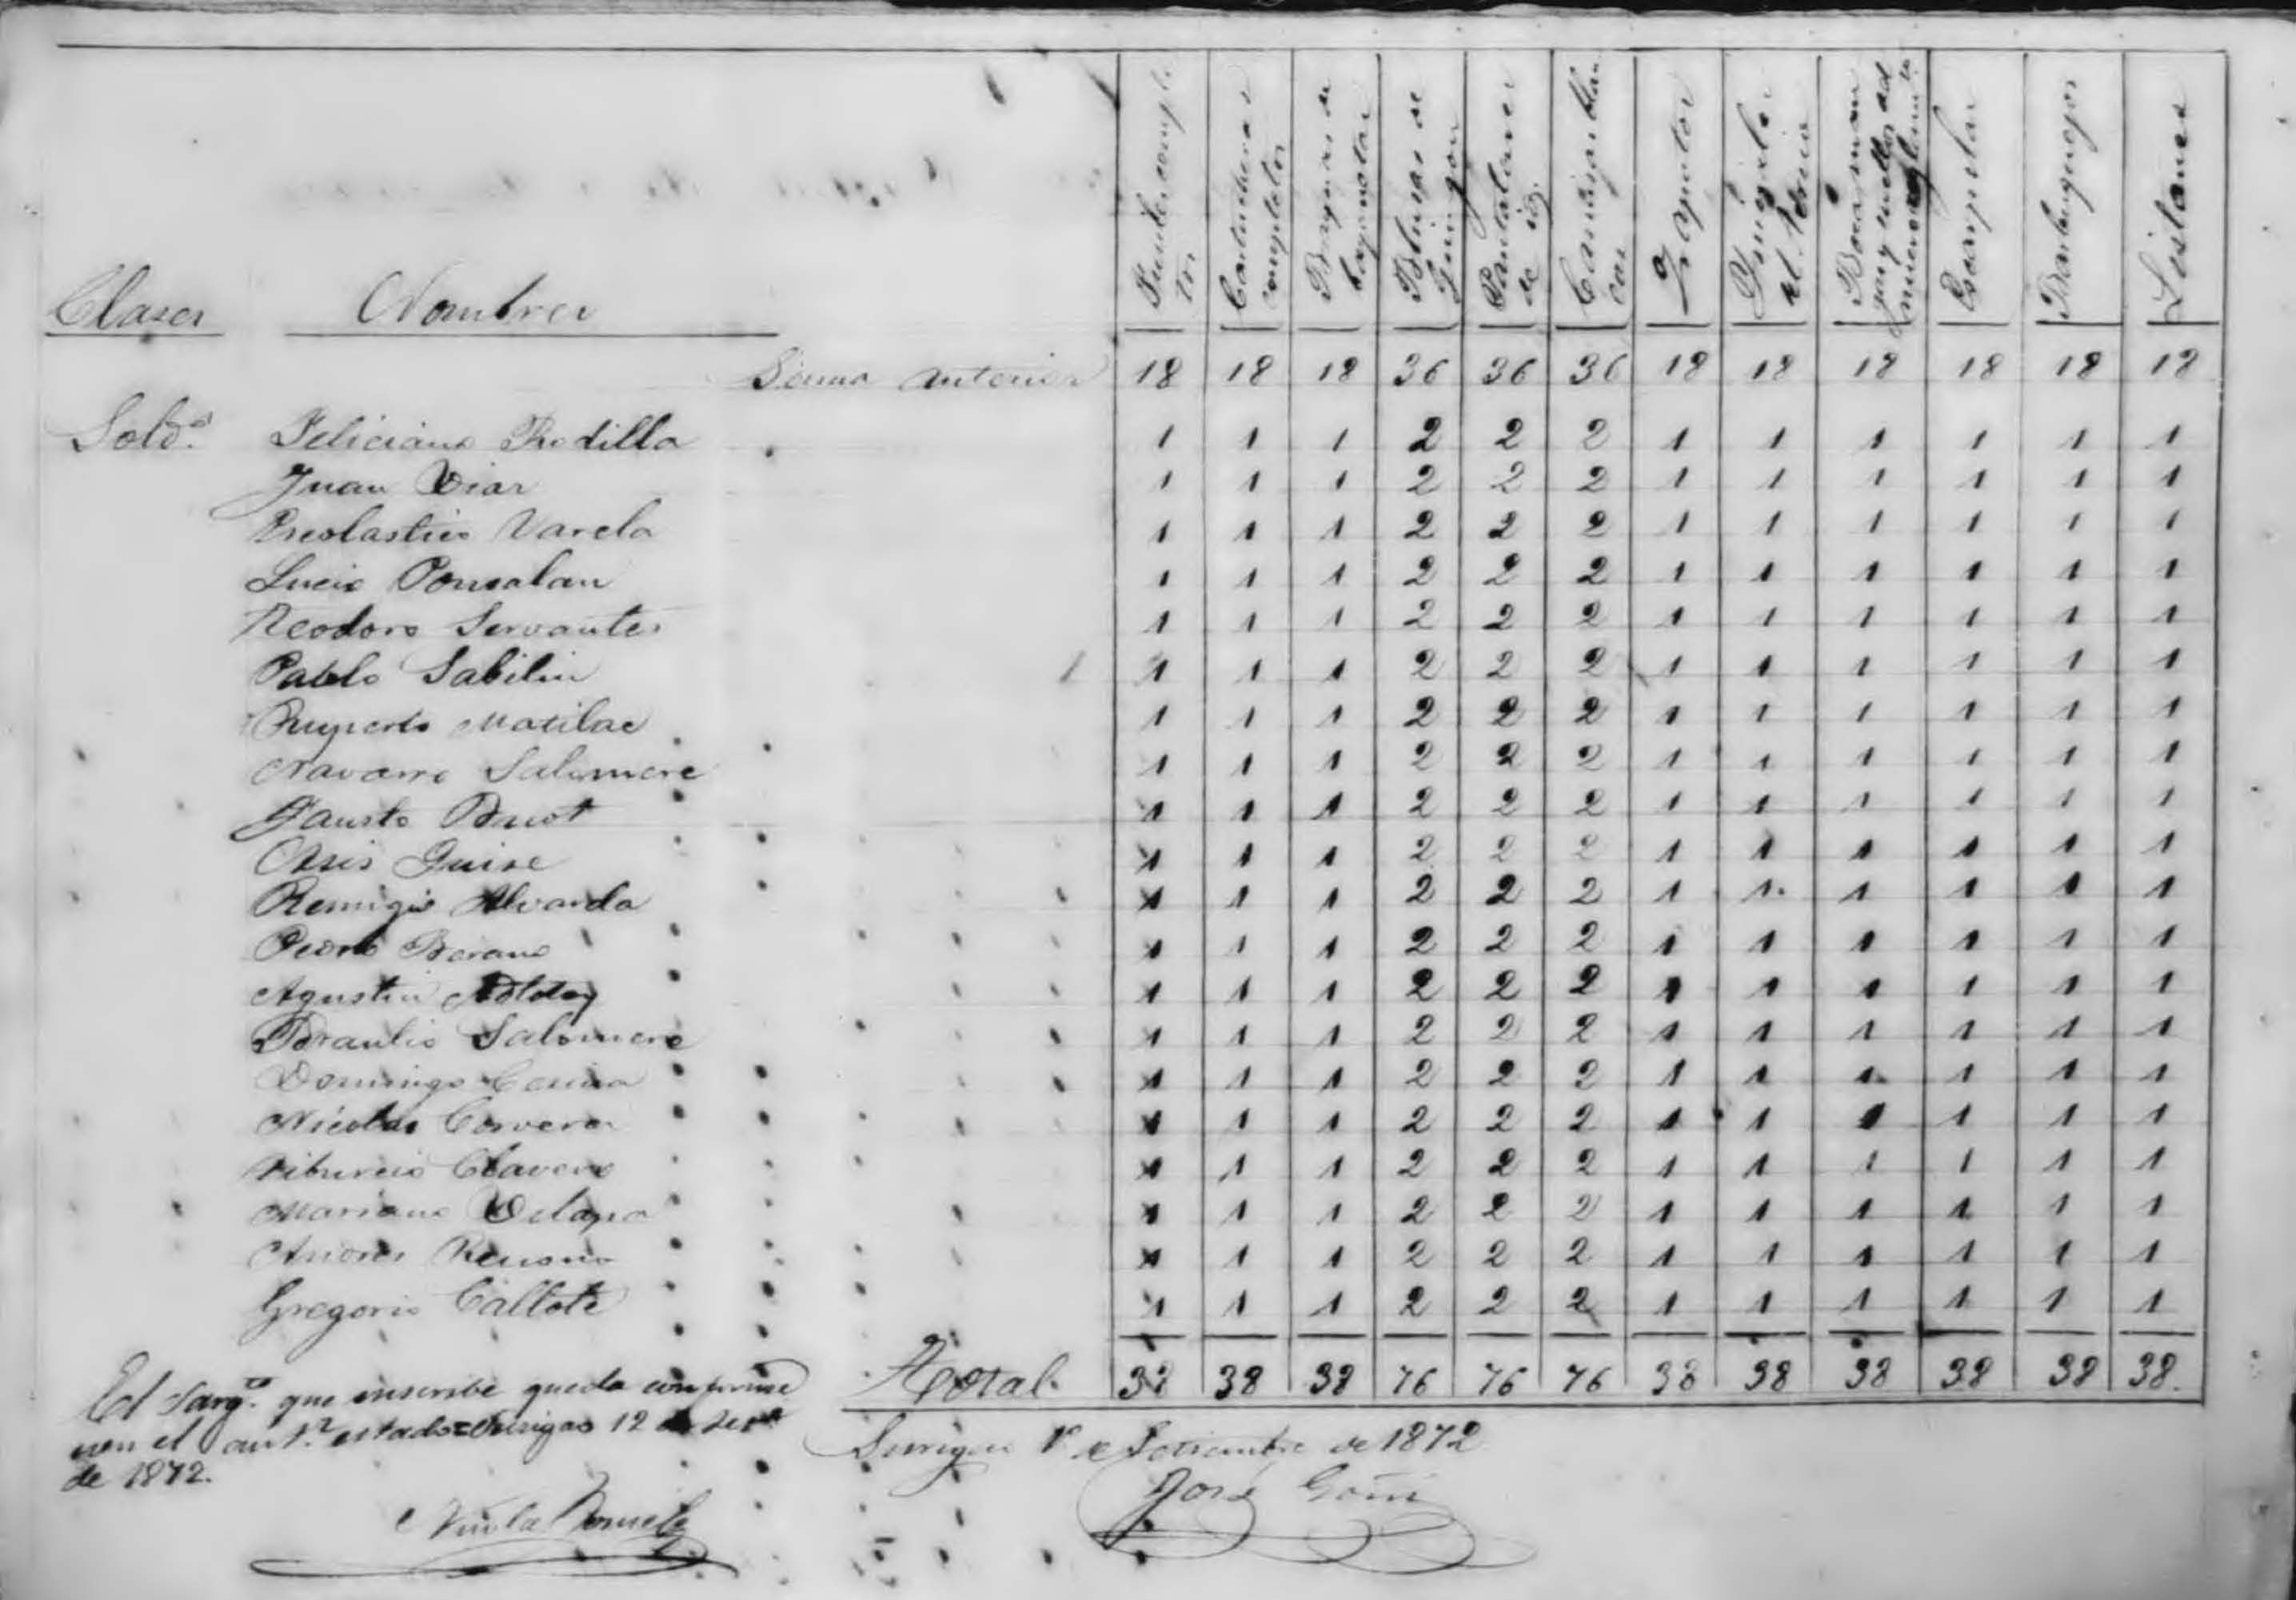 Clases Nombres Fusiles completos Cartucheras completas Baynas de bayonetas Blusas de Guingon Pantalones de id. Camisas blancas Zapatos Escarpelas Barbuquejos Listones
Suma anterior 18 18 18 36 36 36 18 18 18 18 18 18
Sold.s Feliciano Rodilla 1 1 1 2 2 2 1 1 1 1 1 1
Juan Diar 1 1 1 2 2 2 1 1 1 1 1 1
Escolastico Varela 1 1 1 2 2 2 1 1 1 1 1 1
Lucio Ponsalan 1 1 1 2 2 2 1 1 1 1 1 1
Teodoro Servantes 1 1 1 2 2 2 1 1 1 1 1 1
Pablo Sabilin 1 1 1 2 2 2 1 1 1 1 1 1
Ruperto Matilac 1 1 1 2 2 2 1 1 1 1 1 1
Navarro Salomere 1 1 1 2 2 2 1 1 1 1 1 1
Fausto 1 1 1 2 2 2 1 1 1 1 1 1
Asis Guise 1 1 1 2 2 2 1 1 1 1 1 1
Remigio Alvarda 1 1 1 2 2 2 1 1 1 1 1 1
Pedro Berano 1 1 1 2 2 2 1 1 1 1 1 1
Agustin 1 1 1 2 2 2 1 1 1 1 1 1
Braulio Salomere 1 1 1 2 2 2 1 1 1 1 1 1
Domingo 1 1 1 2 2 2 1 1 1 1 1 1
Nicolas Corvera 1 1 1 2 2 2 1 1 1 1 1 1
Tiburcio Clavero 1 1 1 2 2 2 1 1 1 1 1 1
Mariano Delapa 1 1 1 2 2 2 1 1 1 1 1 1
Andres 1 1 1 2 2 2 1 1 1 1 1 1
Gregorio Callote 1 1 1 2 2 2 1 1 1 1 1 1
Total 38 38 38 76 76 76 38 38 38 38 38 38.
El Sarg.to que inscribe queda conforme
con el ant.r estado=Surigao 12 de
de 1872.
Surigao 1º de Setiembre de 1872
José Goñi